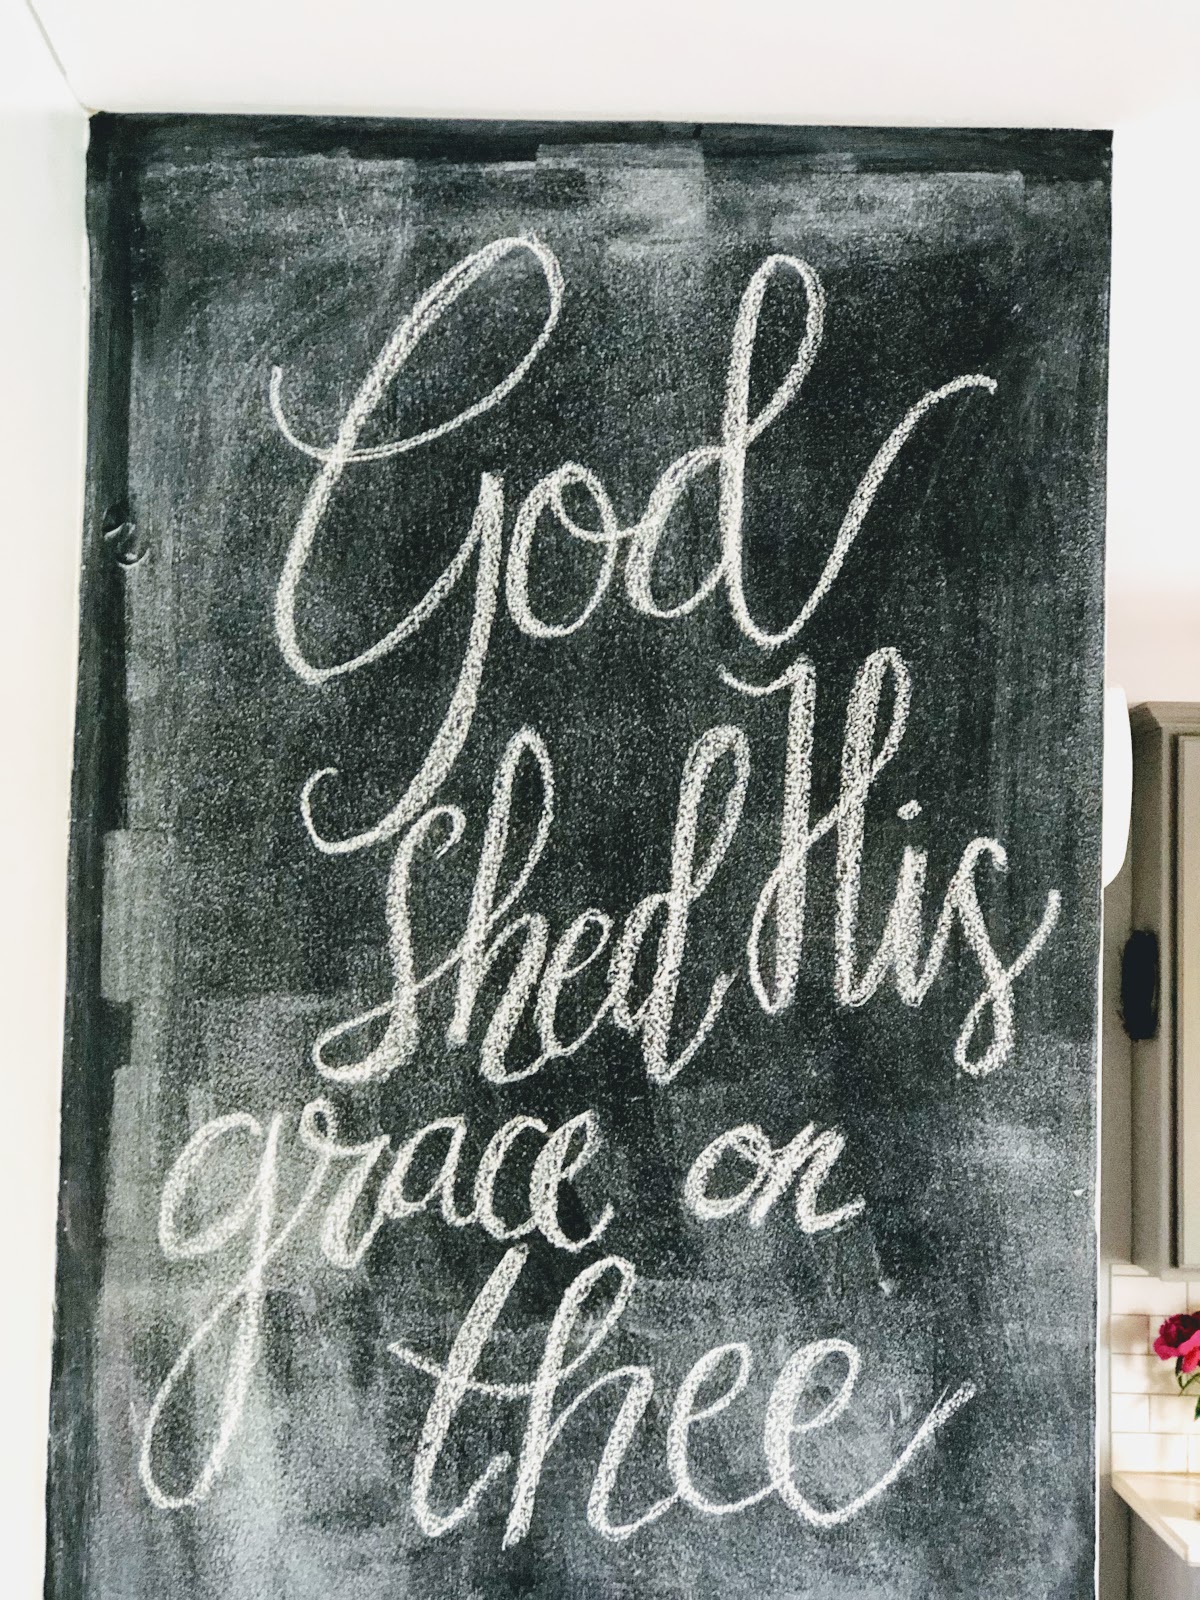 God
shed His
grace on
thee